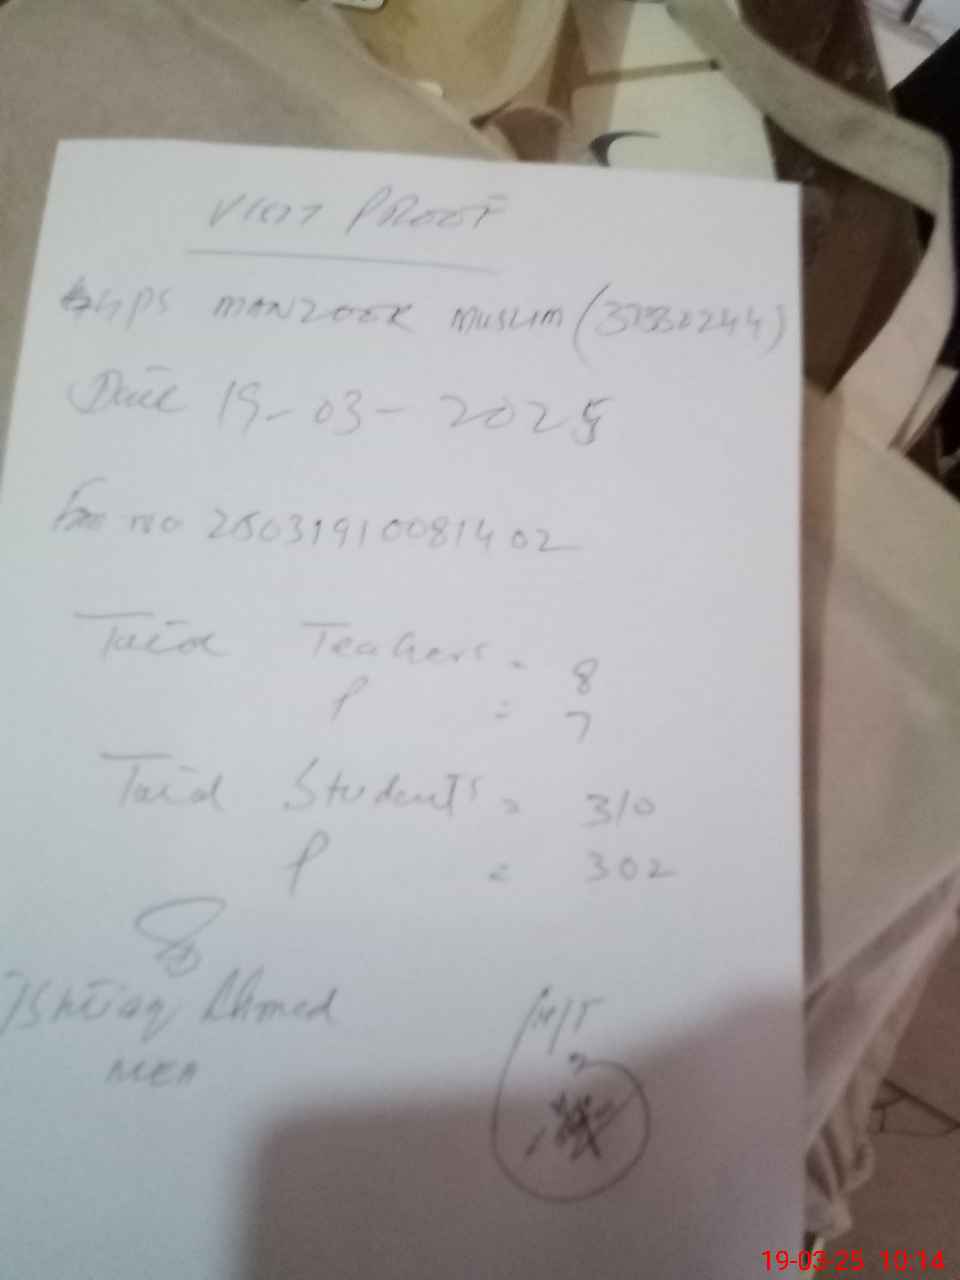 VISIT PROOF
GGPS MANZOOR MUSLIM (37330244)
Date 19-03-2025
Em no 25031910081402
Total Teachers = 8
P = 7
Total Students = 310
P = 302
Ishtiaq Ahmed
MEA
H/T
19-03-25 10:14